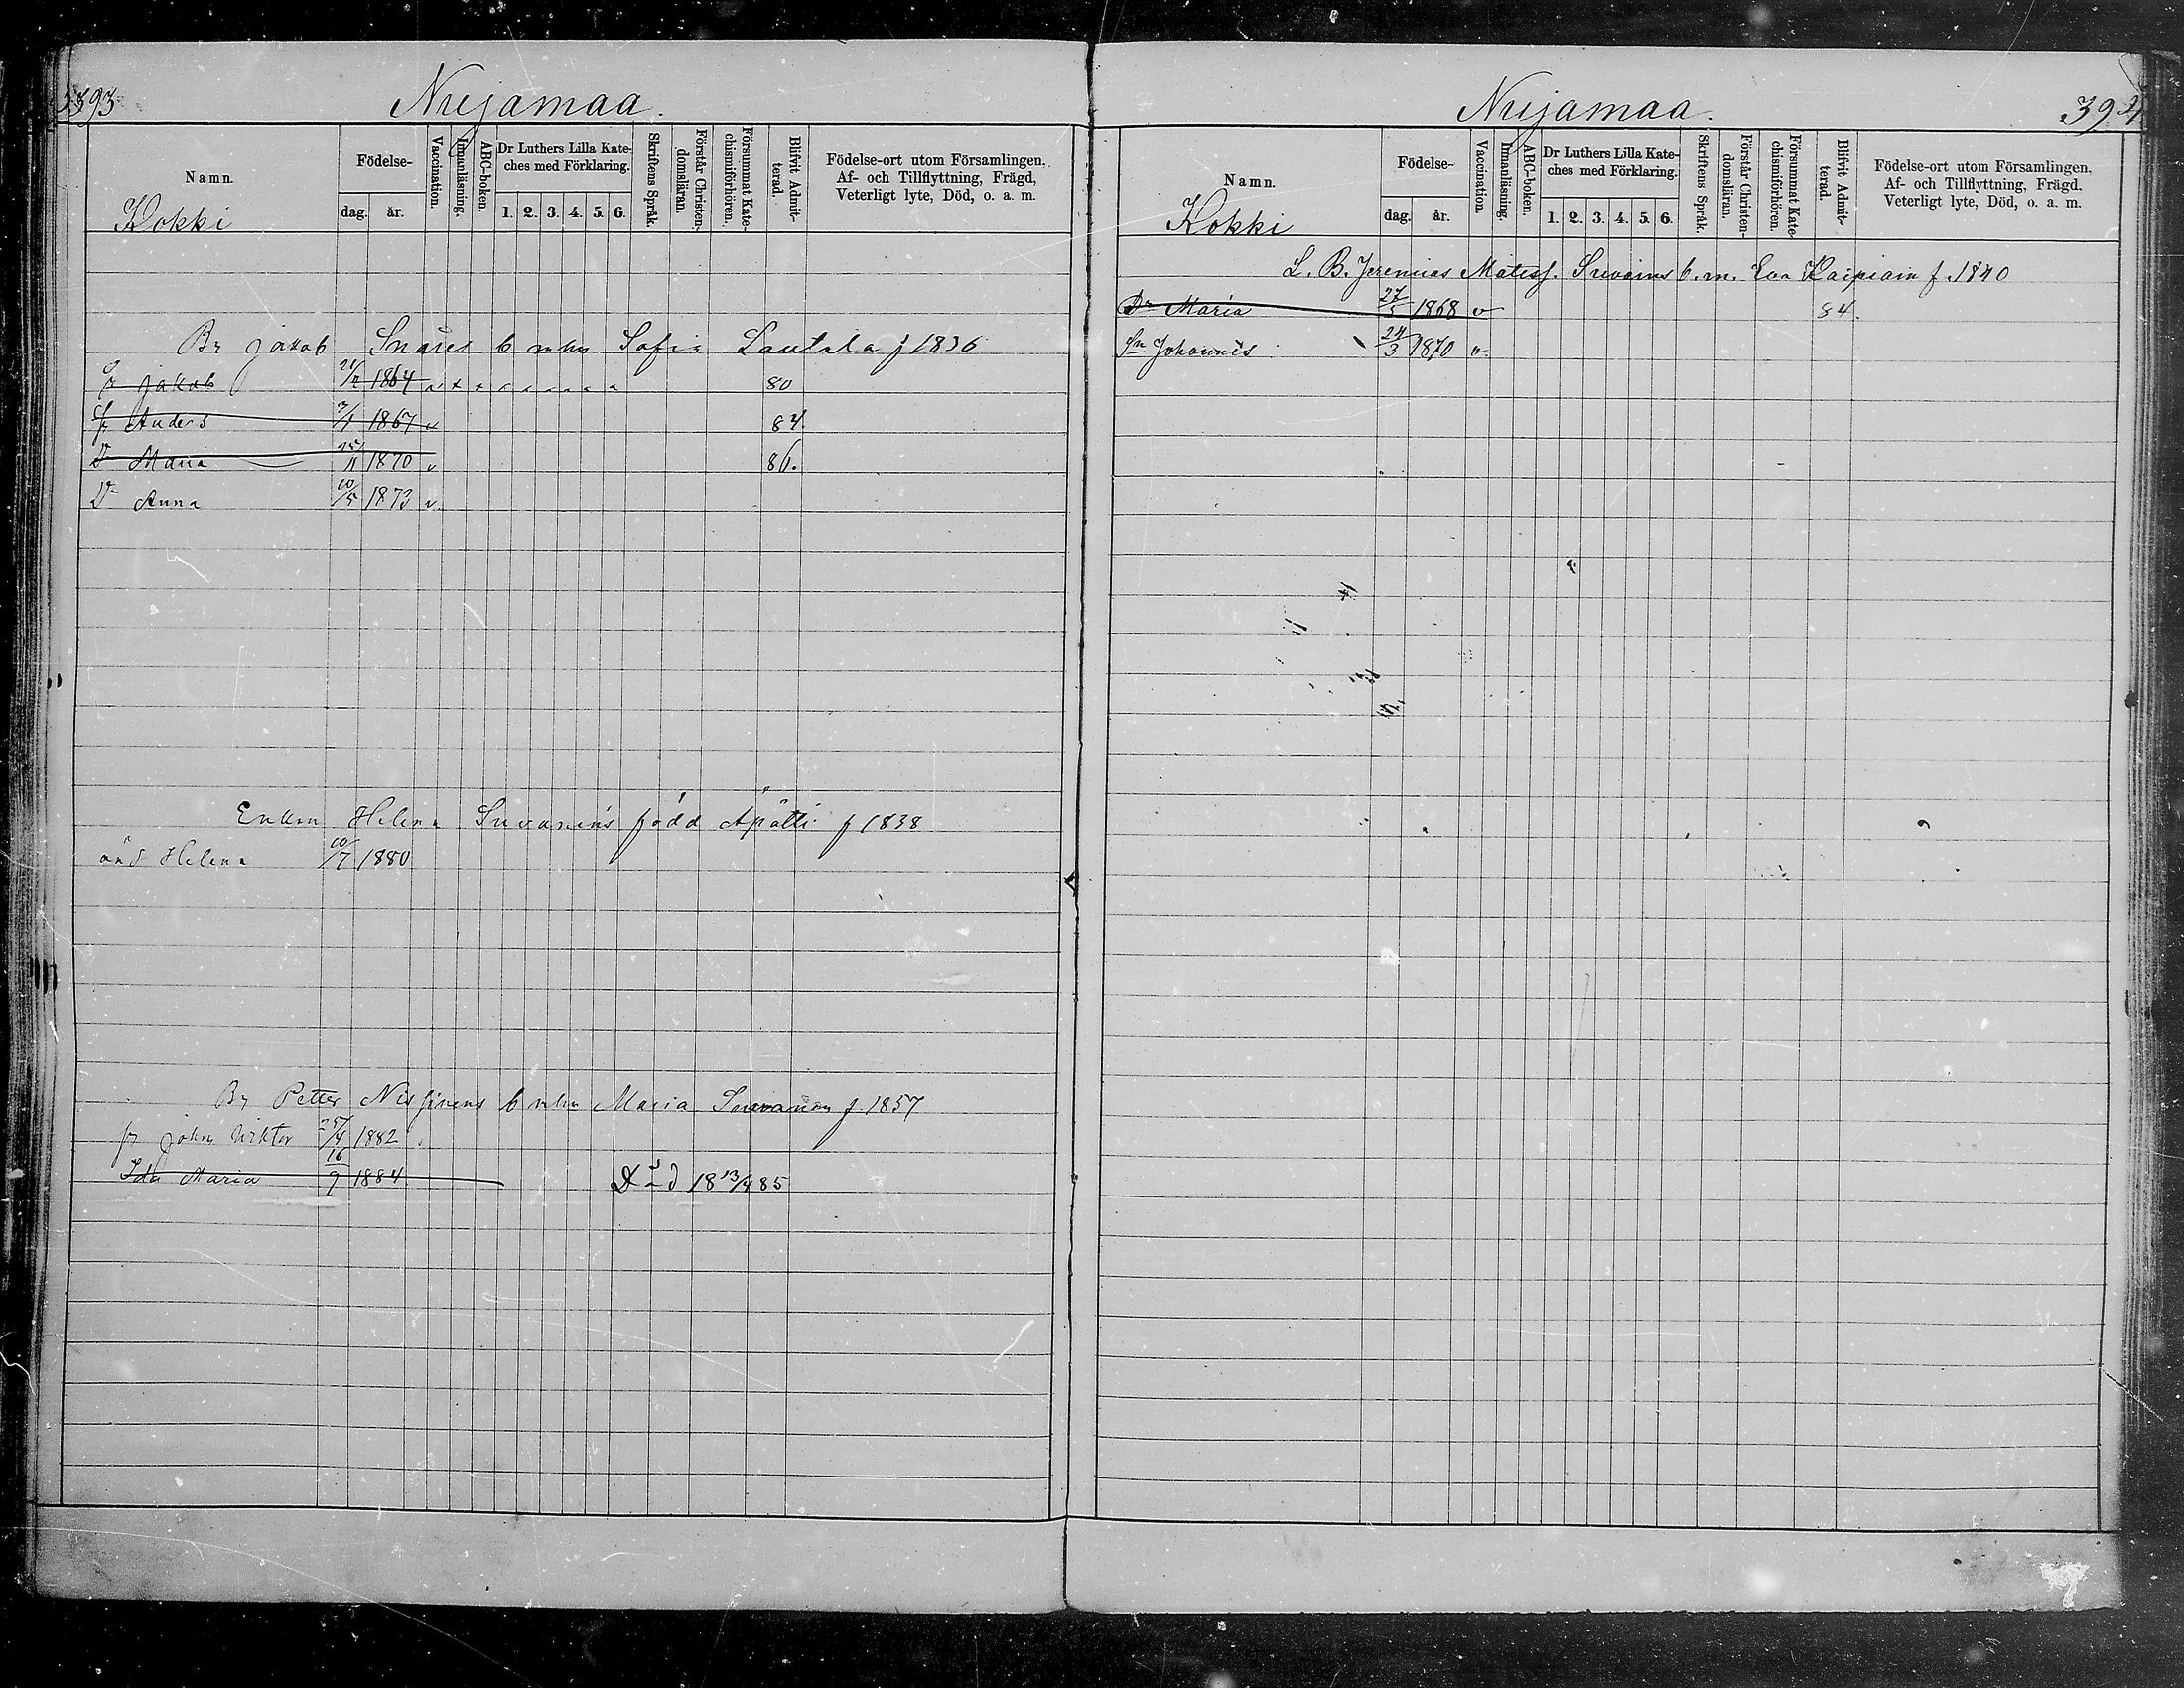 393
Nuijamaa.
Namn.
Kokki
Födelse-
dag. år.
Vaccination.
Innanläsning.
ABC-boken.
Dr Luthers Lilla Kate-
ches med Förklaring.
1. 2. 3. 4. 5. 6.
Skriftens Språk.
Förstår Christen-
domsläran.
Försummat Kate-
chismiförhören.
Blifvit Admit-
terad.
Födelse-ort utom Församlingen.
Af- och Tillflyttning, Frägd,
Veterligt lyte, Död, o. a. m.
Br Jakob Snäres Sofia Lautala f 1836
Jakob 1864 80
Anders 1867 v 84.
Dr Maria 25/11 1870 v 86.
Dr Anna 10/5 1873 v
Enkan Helena Suvanens född Apätti f 1838
Helena 10/7 1880
Br Petter Nissinens Maria Suvanen f. 1857
Johan Viktor 25/4 1882
Ida Maria 16/9 1884 Död 18 13/4 85
394
Nuijamaa.
Namn.
Kokki
Födelse-
dag. år.
Vaccination.
Innanläsning.
ABC-boken.
Dr Luthers Lilla Kate-
ches med Förklaring.
1. 2. 3. 4. 5. 6.
Skriftens Språk.
Förstår Christen-
domsläran.
Försummat Kate-
chismiförhören.
Blifvit Admit-
terad.
Födelse-ort utom Församlingen.
Af- och Tillflyttning, Frägd,
Veterligt lyte, Död, o. a. m.
L. B. Jeremias Matss. Suvains b. m. Eva f. 1840
Dr Maria 27/5 1868 v 84.
Sn Johannes 24/3 1870 v.